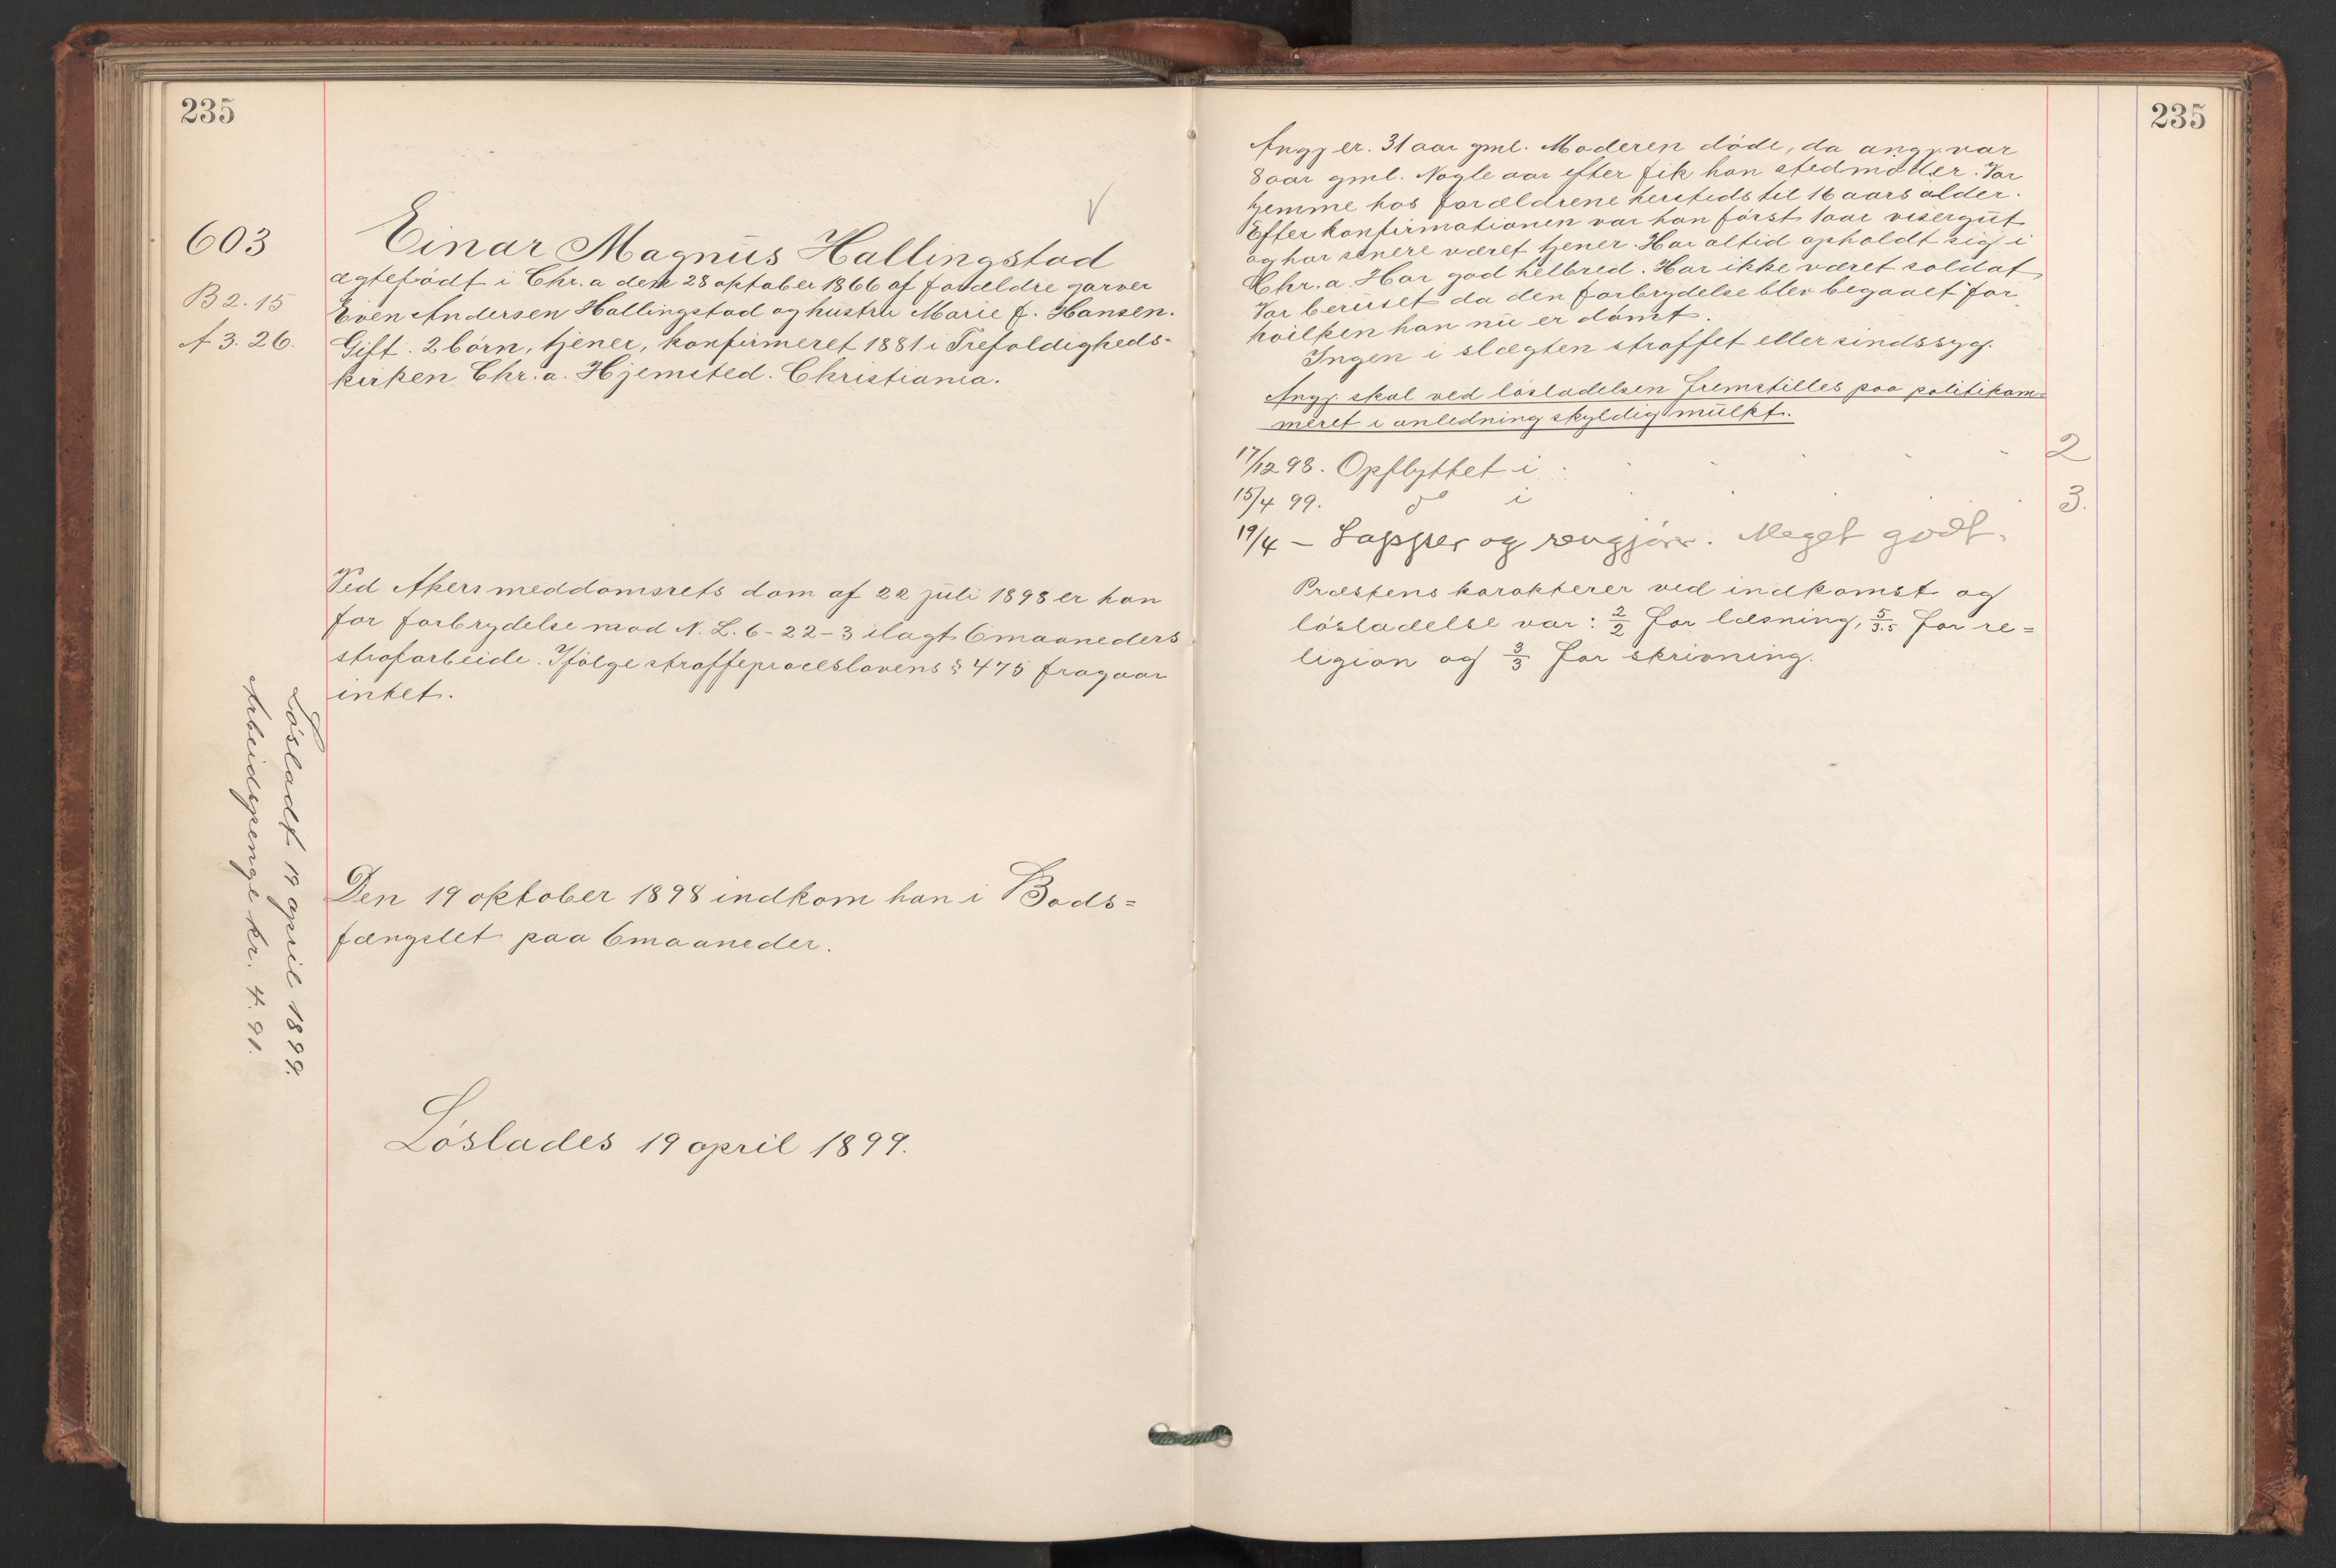 235
603
B 2. 15
A 3. 26.
Einar Magnus Hallingstad
ægtefødt i Chr.a den 28 oktober 1866 af forældre garver
Even Andersen Hallingstad og hustru Marie f. Hansen.
Gift. 2 børn, tjener, konfirmeret 1881 i Trefoldigheds-
kirken Chr.a. Hjemsted. Christiania.
Ved Akers meddomsrets dom af 22 juli 1898 er han
for forbrydelse mod N. L. 6-22-3 ilagt 6 maaneders
strafarbeide. Ifølge straffeproceslovens § 475 fragaar
intet.
Den 19 oktober 1898 indkom han i Bods=
fængslet paa 6 maaneder.
Løslades 19 april 1899.
Løsladt 19 april 1899.
Arbeidspenge kr. 4.91.
235
Angj er. 31 aar gml. Moderen døde, da angj. var
8 aar gml. Nogle aar efter fik han stedmoder. Var
hjemme hos forældrene hersteds til 16 aars alder.
Efter konfirmationen var han først 1 aar visergut
og har senere været tjener. Har altid opholdt sig i
Chr.a. Har god helbred. Har ikke været soldat
Var beruset da den forbrydelse blev begaaet for
hvilken han nu er dømt.
Ingen i slægten straffet eller sindssyg.
Angj. skal ved løsladelsen fremstilles paa politikam=
meret i anledning skyldig mulkt.
17/12 98. Opflyttet i 2
15/4 99. do i 3.
19/4 - Lapper og rengjører. Meget godt.
Præstens karakterer ved indkomst og
løsladelse var: 2/2 for læsning, 5/3.5 for re=
ligion og 3/3 for skrivning.